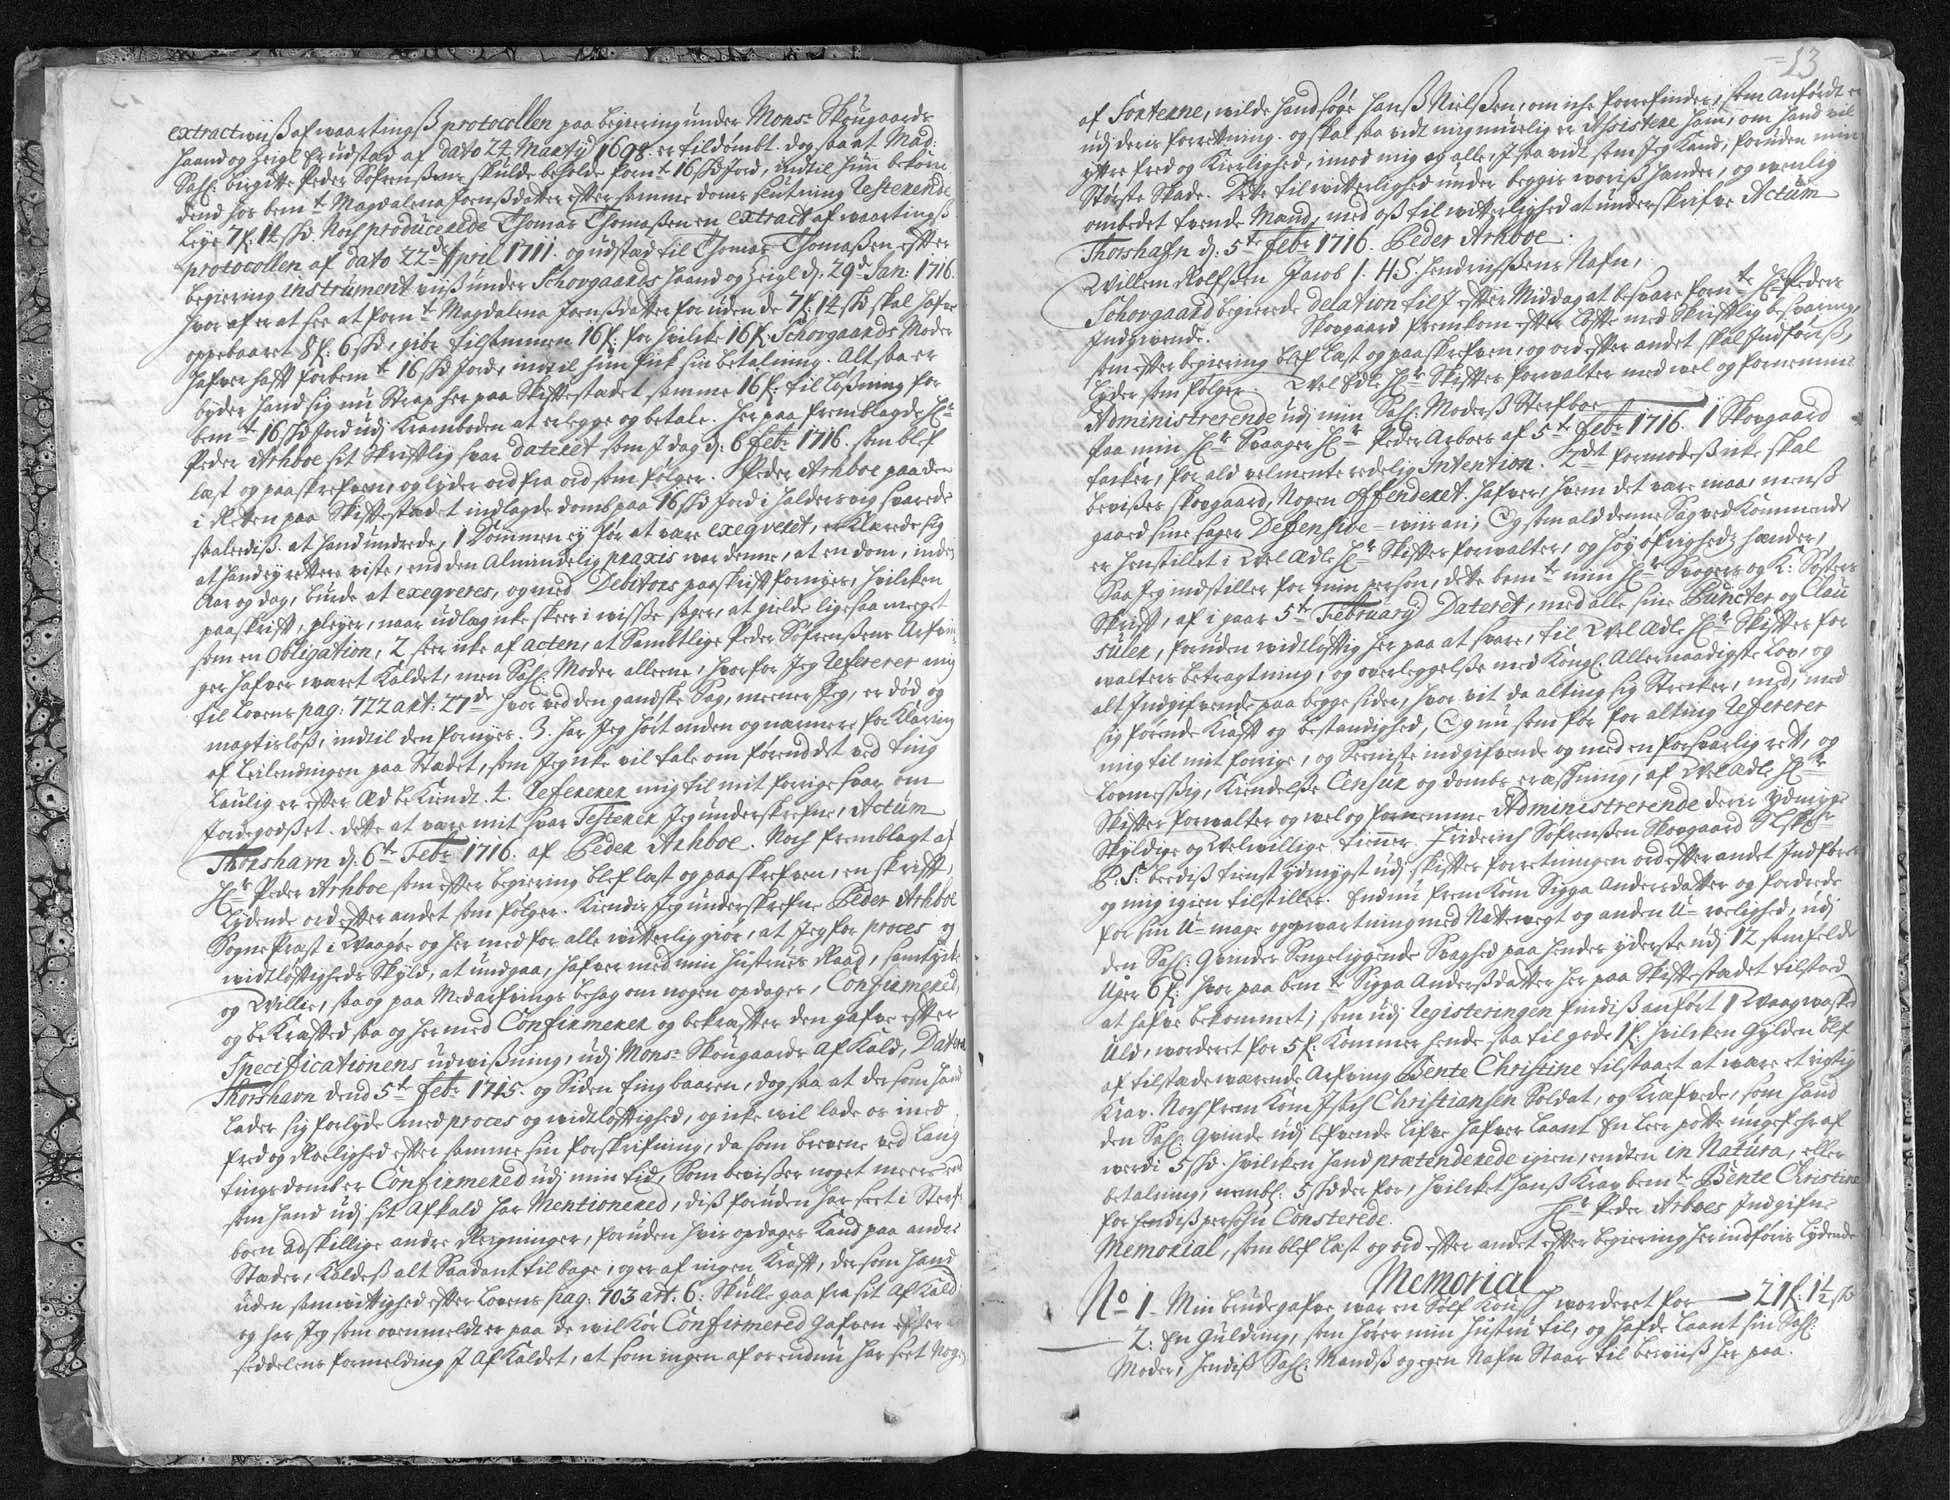 extractviiß af waartingß protocollen paa begiering under Mons: Skougaards
Haand og Zeigl er udstæd af dato 24 Martij 1698. er tildömbt. dog saa at Mad:
Sahl: birgitte Peder Söfrenßens skulde beholde forn:t 16 ssd Jord, indtil hun bekom
dend hos bem:te Magdalena Joenßdatter efter samme doms slutning resterende
leye 7 f: 14 ssd. Noch producerede Thomas Thomaßen en extract af waartingß
protocollen af dato 22:de April 1711. og udstæd til Thomas Thomaßen efter
begiering instrument viiß under Schovgaards Haand og Zeigl d: 29:de Jan: 1716.
hvor af er at see at forn:te Magdalena Jonßdatter foruden de 7 f: 14 ssd skal hafve
oppebaaret 8 f: 6 ssd, giör tilsammen 16 f: for hvilcke 16 f: Schovgaards Moder
hafver hafft forbem:te 16 ssd Jord, indtil hun fick sin betalning. Alt saa er
byder hand sig nu Strax her paa Skiftestædet samme 16 f: til lößning for
bem:te 16 ssd Jord udj Kramboden at erlegge og betale. her paa fremblagde Hr:
Peder Arhboe sit Skriftlig svar dateret som J dag d: 6 Febr: 1716. som blef
læst og paaskrefven, og lyder ord fra ord som fölger. Peder Arhboe paa den
i Retten paa Skiftestædet indlagde domb paa 16 ssd Jord i Haldersvig svarede
saaledis. at hand undrede, 1 Dommen ey för at være exeqveret, erklærede sig
at hand ey rettere viste, end den Almindelig praxis var denne, at en dom, inden
Aar og dag, burde at exeqveres, og med Debitors paaskrift fornyes, hvilcken
paaskrift, pleyer, naar udlæg icke skeer i visse sager, at gielde ligesaa meeget
som en obligation, 2 seer icke af acten, at Sambtlige Peder Söfrenßens Arfvin
ger hafver været Kaldet, men Sahl: Moder alleene, hvorfor Jeg refererer mig
til Lovens pag: 722 art: 27:de hvor ved den gandske Sag, meener Jeg, er död og
magtislöß, indtil den fornyes. 3. har Jeg hört anden og nærmere forklaring
af Leilendingen paa Stædet, som Jeg icke vil tale om förend det ved ting
laulig er efter Æd bekiendt. 4. refererer mig til mit forrige svar om
Jordegodset. dette at være mit svar Testerer Jeg underskrefne, Actum
Thorshavn d: 6:te Febr: 1716. af Peder Arhboe. Noch fremblagt af
Hr: Peder Arhboe som efter begiering blef læst og paaskrefven, en skrift,
lydende ord efter andet som fölger. Kiendis Jeg underskrefne Peder Arhboe
Sogne Præst i Waagöe og her med for alle witterlig giör, at Jeg for proces og
widtlöftigheds skyld, at undgaa, hafver med min hustrues Raad, samtycke
og Willie, saa og paa Medarfvings behag om nogen opdages, Confirmered,
og bekrafted saa og hermed Confirmerer og bekrafter den gafve efter
Specificationens udvißning, udj Mons: Skougaards Afkald, Dateret
Thorshavn dend 5:te Febr: 1715. og Siden tingbaaren, dog saa at der som hand
lader sig forlyde med proces og widtlöftighed, og icke wil lade os i med
fred og Roelighed efter samme sin forskrifning, da som brevene ved laug
tingsdomber Confirmered udj min tid, Som beviser noget meere end
som hand udj sit Afkald har Mentionered, diß foruden har seet i Sterf:
boen adskillige andre Regninger, foruden hvis opdages kand paa andre
Stæder, Kaldeß alt Saadant tilbage, og er af ingen Kraft, der som hand
uden samvittighed efter Lovens pag: 703 art: 6: Skulle gaa fra sit Afkald
og har Jeg som ovenmeldt er paa de wilkör Confirmered Gafven efter
seddelens formelding J Afkaldet, at som ingen af os endnu har seet Nogen
13
af Forterne, wilde hand söge Hanß Nielßen, om icke forrefindes, som anfördt er
udj deris forretning. og skal saa vidt mig muelig er Assistere ham, om hand vil
yttre fred og Kierlighed, imod mig og alle, J saa vidt som Jeg kand, foruden min
Störste Skade. Dette til witterlighed under beggis voriß hænder, og venlig
ombedet tvende Mænd, med oß til witterlighed at underskrifve Actum
Thorshafn d: 5:te Febr: 1716. Peder Arhboe.
Willem Rolfßen Jacob J. HS. Hendrichßens Nafn,
Schovgaard begierede delation til J efter Middag at besvare forn:te Hr: Peders
Indgivende. Skovgaard fremkom efter löfte med skriftlig besvaring,
som efter begiering blef læst og paaskrefven, og ord efter andet skal Indföris,
lyder som fölger. Wel Edle Hr: Skiftes forwalter med wel og fornemme
Administrerende udj min Sahl: Moderß Sterfboe
Paa min Hr: Svaager Hr: Peder Arboes af 5:te Febr: 1716. 1 Skovgaard
tacker, for ald velmente redelig Intention. 2:det formodeß icke skal
bevises skovgaard, Nogen offenderet. hafver, hvem det være maa, mens
gaard sine sager Defensive viis an; Og som ald denne Sag ved kommende
er henstillet i Wel Ædle Hr: Skifter forwalter, og höy öfrigheds hænder,
Saa Jeg indstiller for min person, dette bem:te min Hr: Svogers og K: Sösters
Skrift, af i gaar 5:te Februarij Dateret, med alle sine Puncter og Clau
suler, foruden widtlöftig her paa at svare, til Wel Ædle Hr: Skifter for
walters betragtning, og overleggelse med Kongl: Allernaadigste Lov, og
alt Indgifvende paa begge sider, hvor vit da alting sig Strecker, med, med
sig förende Kraft og bestandighed, Og nu som för for alting refererer
mig til mit forrige, og Seeniste indgifvende og med en forsvarlig ret, og
lovmeßig, Kiendelse Censur og domb eræskning, af Wel Ædle Hr:
Skifter forwalter og wel og fornemme Administrerende deris ydmyge
Skyldige og Velwillige tienner. Friderich Söfrenßen Skovgaard
P: S: beediß tienst ydmygst udj skifter forretningen ord efter andet Indföre
og mig igien tilstiller. Endnu fremkom Sigga Andersdatter og fordrede
for sin U-mage opvartning med Nattevegt og anden U-roelighed, udj
den Sahl: Qvindes Sengeliggende Svaghed paa hendes yderste udj 12 samfelde
Uger 6 f: hvor paa bem:te Sigga Anderßdatter her paa Skiftestædet tilstoed
at hafve bekommet; som udj registeringen findiß anfört 1 waag vaske
Uld, worderet for 5 f: kommer hende saa til gode 1 f: hvilcken Gylden blef
af tilstædewærende Arfving Bente Christine tilstaaet at være et rigtig
Krav. Noch fremkom Jsach Christiansen Soldat, og Krafvede, som hand
den Sahl: Qvinde udj lefvende lifve hafver laant En leer potte ungefehr af
werdi 5 ssd. hvilcken hand prætenderede igien, endten in Natura, eller
betalning, nembl: 5 ssd der for, hvilcket hanß Krav bem:te Bente Christine
for hendiß persohn Consterede. Hr: Peder Arboes Indgifne
Memorial, som blef læst og ord efter andet efter begiering her indföris lydende
Memorial
No 1. Min brudegafve war en Sölf Kouß worderet for 21 f: 1½ ssd
2. En Guldring, som hörer min hustru til, og hafde laant sin Sahl:
Moder, hendiß Sahl: Mandß og egen Nafn staar til beviiß her paa.